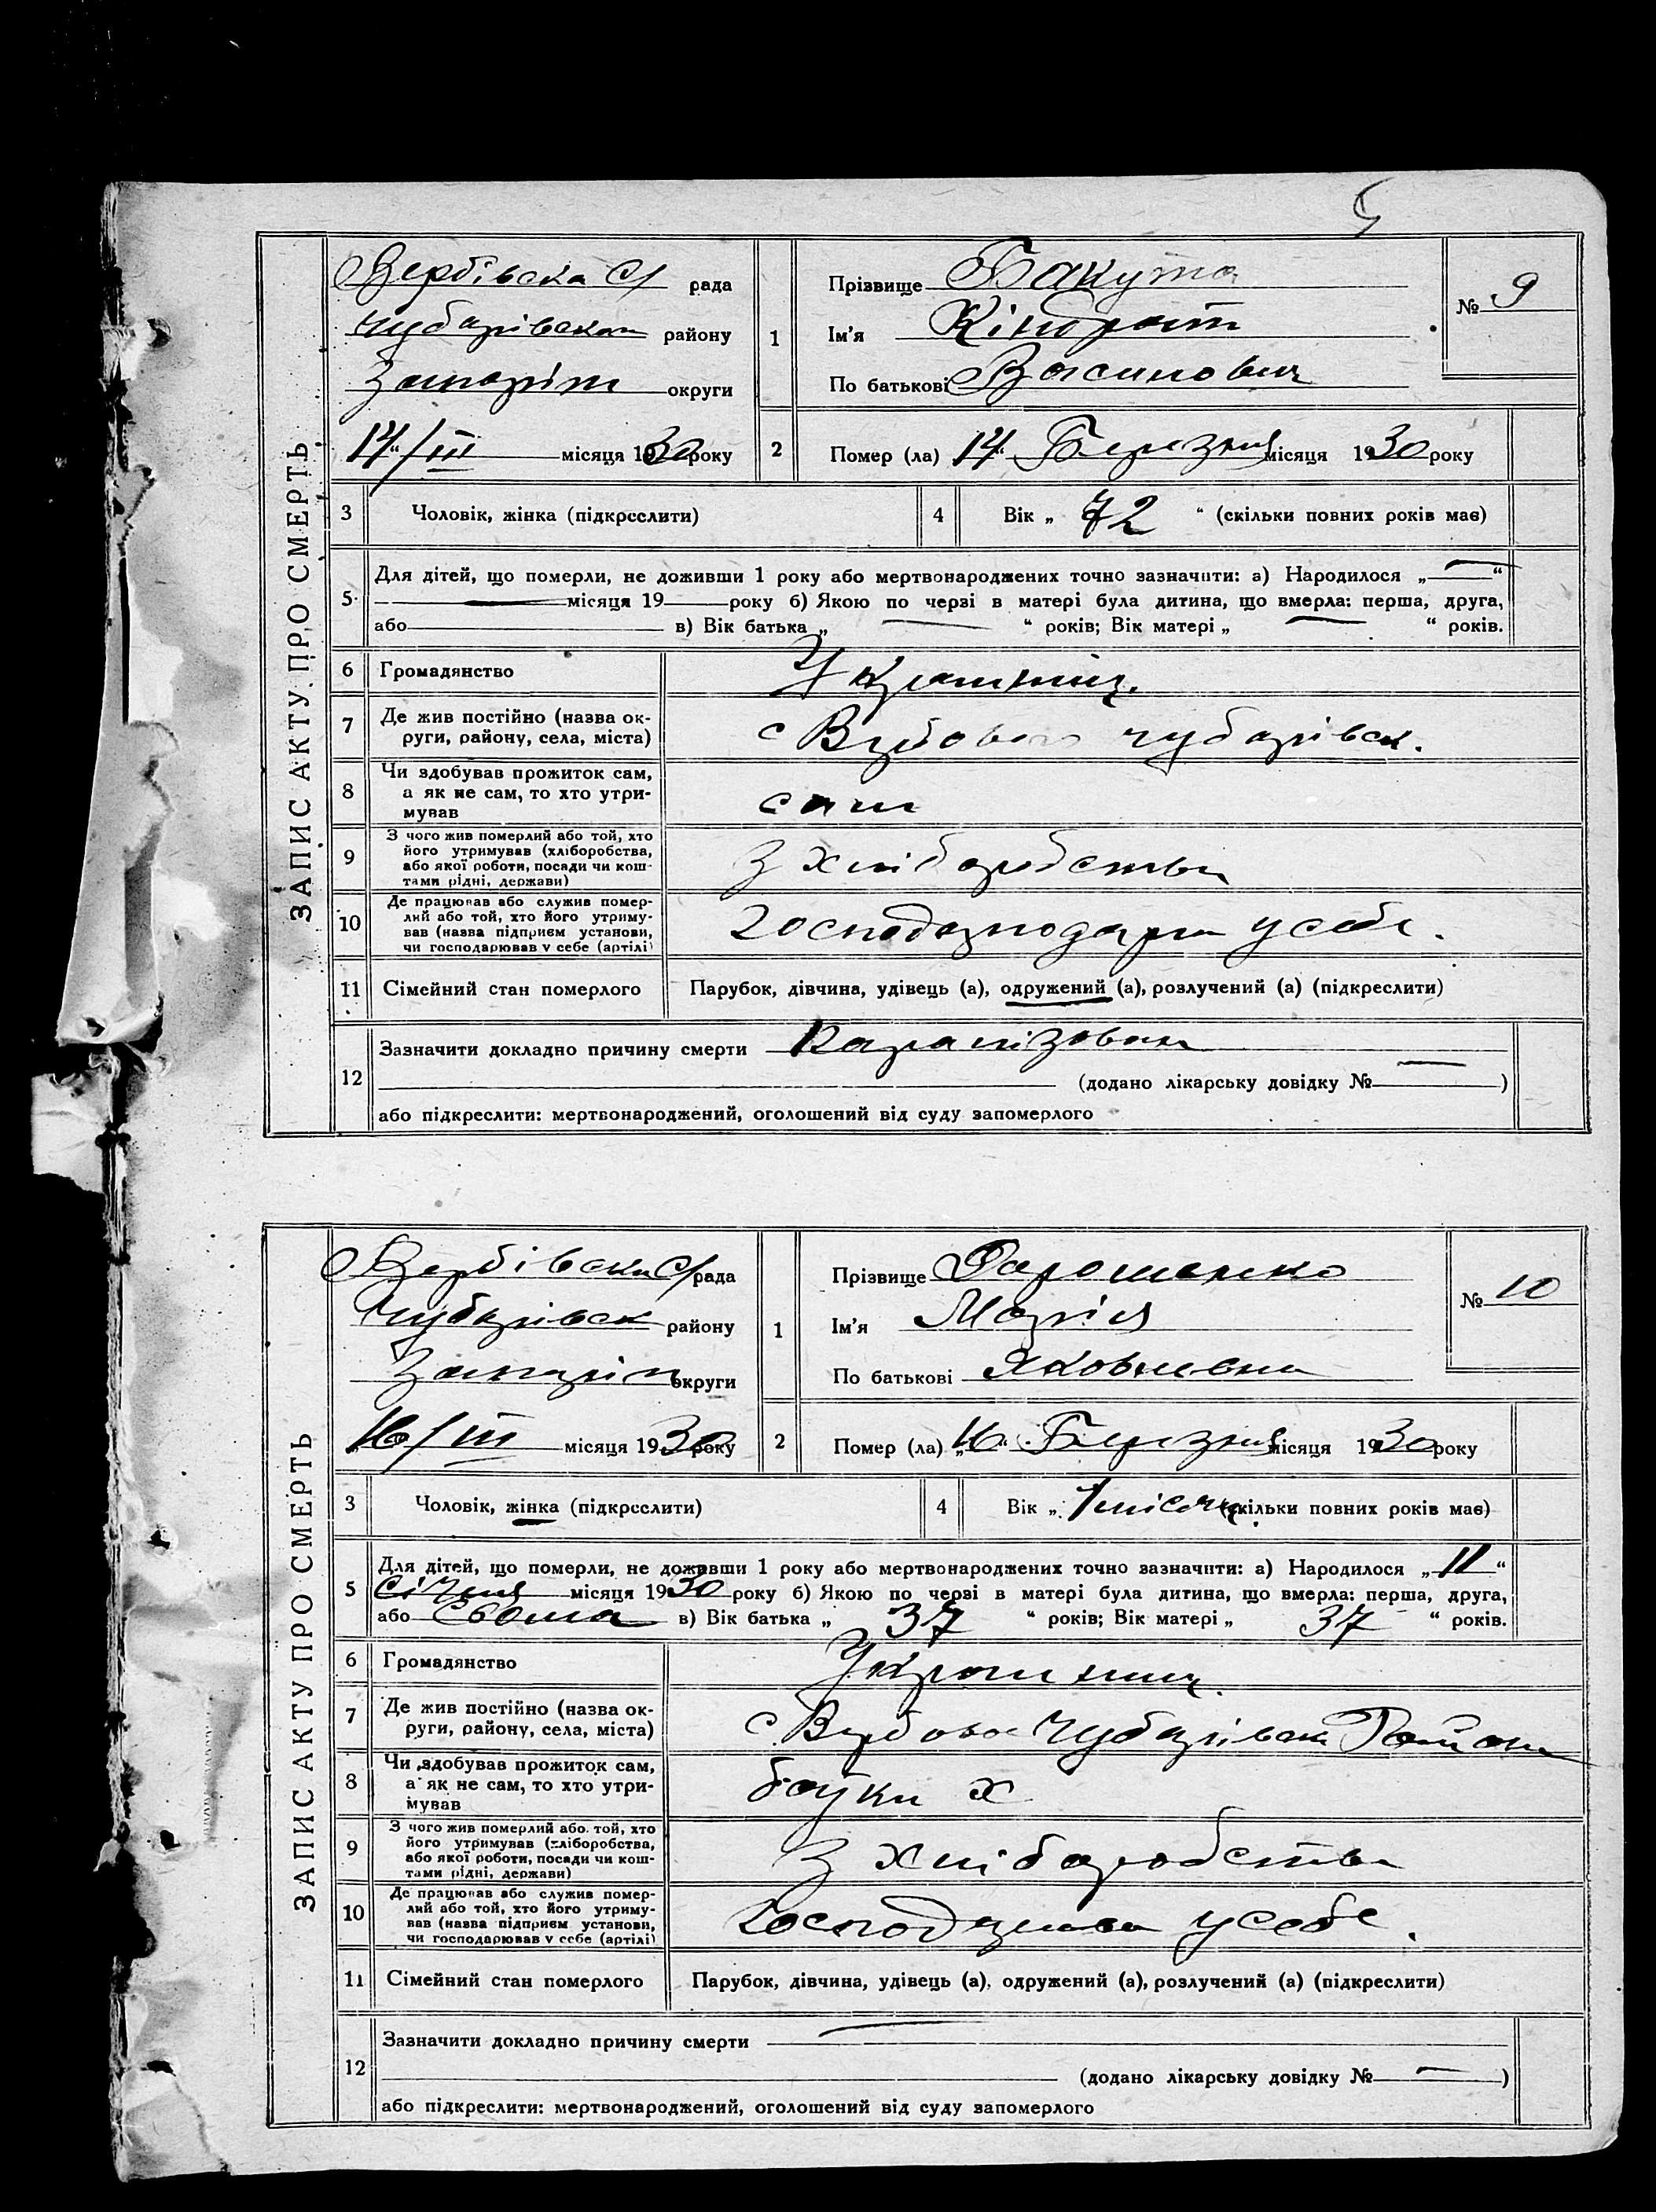 5
ЗАПИС АКТУ ПРО СМЕРТЬ
Вербівська С/ рада
Чубарівськ району
Запоріж округи
14/III місяця 1930 року
1
Прізвище Бакута
Ім'я Кіндрат
По батькові
№ 9
2
Помер (ла) „14“ Березня місяця 1930 року
3
Чоловік, жінка (підкреслити)
4
Вік „ 72 “ (скільки повних років має)
5
Для дітей, що померли, не доживши 1 року або мертвонароджених точно зазначити: а) Народилося „—“
— місяця 19 року б) Якою по черзі в матері була дитина, що вмерла: перша, друга,
або в) Вік батька „ — “ років; Вік матері „ — “ років.
6
Громадянство
Україниц.
7
Де жив постійно (назва ок-
руги, району, села, міста)
с Вербова чубарівск.
8
Чи здобував прожиток сам,
а як не сам, то хто утри-
мував
сам
9
З чого жив померлий або той, хто
його утримував (хліборобства,
або якої роботи, посади чи кош-
тами рідні, держави)
З хліборобства
10
Де працював або служив помер-
лий або той, хто його утриму-
вав (назва підприєм установи,
чи господарював у себе (артілі)
у себе.
11
Сімейний стан померлого
Парубок, дівчина, удівець (а), одружений (а), розлучений (а) (підкреслити)
12
Зазначити докладно причину смерти Паралізован
(додано лікарську довідку № — )
або підкреслити: мертвонароджений, оголошений від суду запомерлого
ЗАПИС АКТУ ПРО СМЕРТЬ
Вербівська С/ рада
Чубарівськ району
Запоріж округи
16/III місяця 1930 року
1
Прізвище Дорошенко
Ім'я Марія
По батькові Яковлевна
№ 10
2
Помер (ла) „16“ Березня місяця 1930 року
3
Чоловік, жінка (підкреслити)
4
Вік „ (скільки повних років має)
5
Для дітей, що померли, не доживши 1 року або мертвонароджених точно зазначити: а) Народилося „11“
Січня місяця 1930 року б) Якою по черзі в матері була дитина, що вмерла: перша, друга,
або сьома в) Вік батька „ 37 “ років; Вік матері „ 37 “ років.
6
Громадянство
Україниц.
7
Де жив постійно (назва ок-
руги, району, села, міста)
с Вербова Чубарівськ Району
8
Чи здобував прожиток сам,
а як не сам, то хто утри-
мував
9
З чого жив померлий або той, хто
його утримував (хліборобства,
або якої роботи, посади чи кош-
тами рідні, держави)
З хліборобства
10
Де працював або служив помер-
лий або той, хто його утриму-
вав (назва підприєм установи,
чи господарював у себе (артілі)
у себе.
11
Сімейний стан померлого
Парубок, дівчина, удівець (а), одружений (а), розлучений (а) (підкреслити)
12
Зазначити докладно причину смерти —
(додано лікарську довідку № — )
або підкреслити: мертвонароджений, оголошений від суду запомерлого